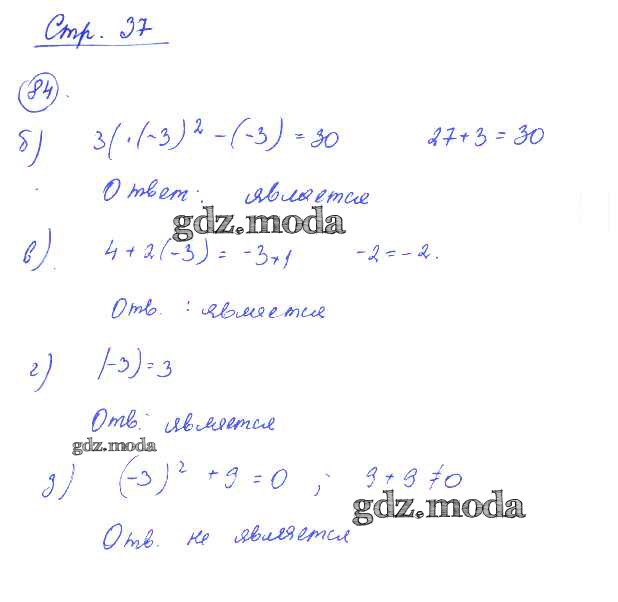 Стр. 37
84.
б) 3(·(-3)² - (-3) = 30 27 + 3 = 30
Ответ: является
gdz.moda
в) 4 + 2(-3) = -3+1 -2 = -2.
Отв. : является
г) |-3) = 3
Отв: является
gdz.moda
д) (-3)² + 9 = 0 ; 9 + 9 ≠ 0
gdz.moda
Отв. не является